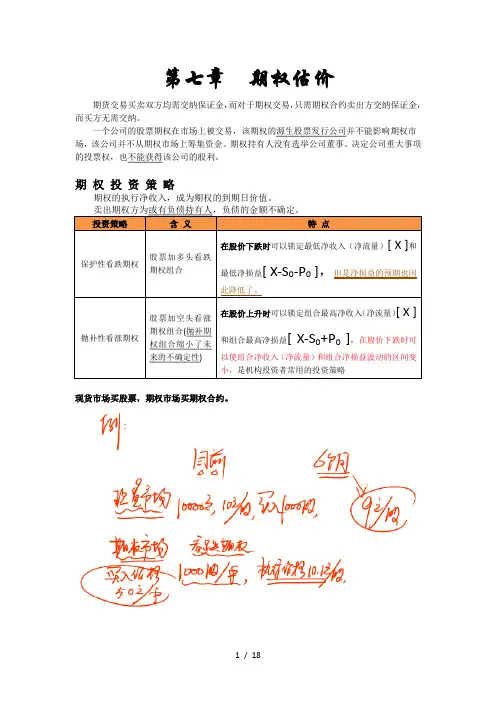 第七章 期权估价
期货交易买卖双方均需交纳保证金,而对于期权交易,只需期权合约卖出方交纳保证金,
而买方无需交纳。
一个公司的股票期权在市场上被交易,该期权的源生股票发行公司并不能影响期权市
场,该公司并不从期权市场上筹集资金。期权持有人没有选举公司董事、决定公司重大事项
的投票权,也不能获得该公司的股利。
期 权 投 资 策 略
期权的执行净收入,成为期权的到期日价值。
卖出期权方为或有负债持有人,负债的金额不确定。
投资策略 含 义 特 点
保护性看跌期权
股票加多头看跌
期权组合
在股价下跌时可以锁定最低净收入(净流量)[ X ]和
最低净损益[ X-S₀-P₀ ],但是净损益的预期也因
此降低了。
抛补性看涨期权
股票加空头看涨
期权组合(抛补期
权组合缩小了未
来的不确定性)
在股价上升时可以锁定组合最高净收入(净流量)[ X ]
和组合最高净损益[ X-S₀+P₀ ],在股价下跌时可
以使组合净收入(净流量)和组合净损益波动的区间变
小,是机构投资者常用的投资策略
现货市场买股票,期权市场买期权合约。
例:
目前 6个月
现货市场 10000元,10元/股,买1000股, 9元/股
期权市场 看跌期权
买入价格 1000股/手,执行价格10.1元/股,
50元/手
1 / 18